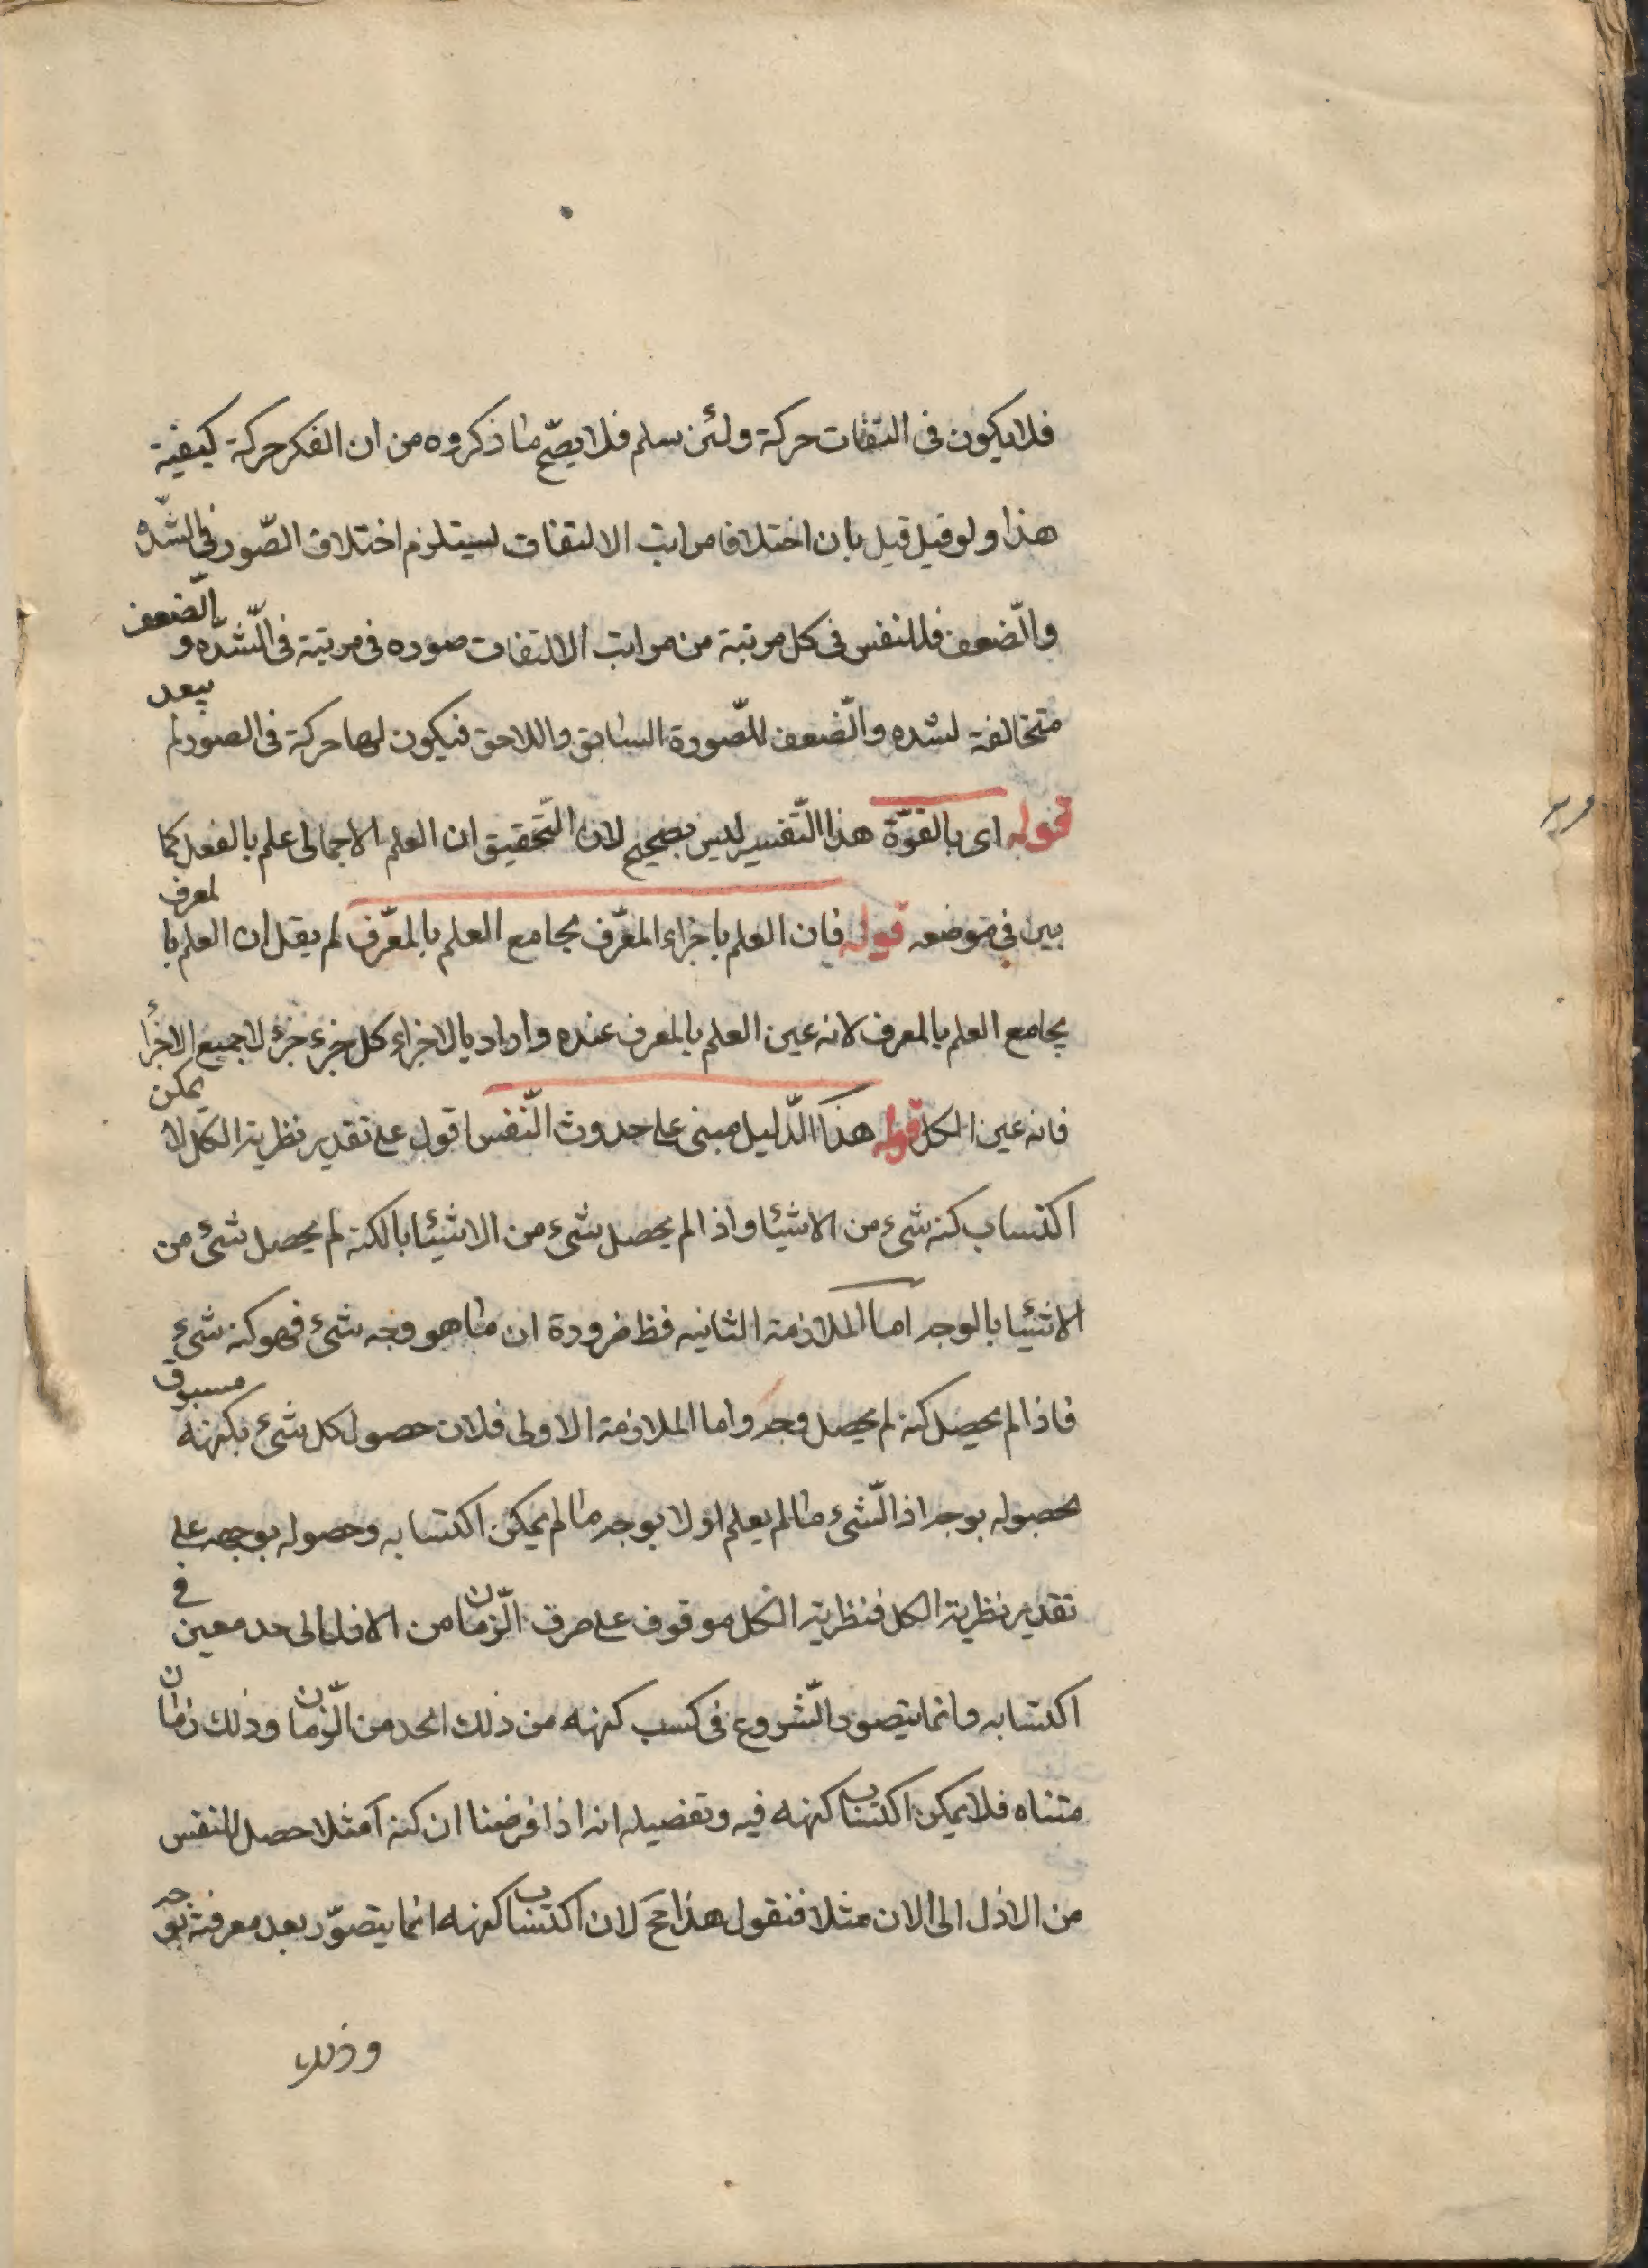 فلا يكون فى التفات حركة ولئن سلم فلا يصحّ ما ذكروه من ان الفكر حركة كيفية
هذا ولو قيل قيل بان اختلاف مراتب الالتفات يستلزم اختلاف الصّور فى الشّده
والضّعف فللنفس فى كل مرتبة من مراتب الالتفات صوره فى مرتبة فى الشّده والضّعف
متخالفة لشده والضّعف للصّورة السابق واللاحق فيكون لها حركة فى الصور لم يبعد
قوله اى بالقوّة هذا التّفسير ليس بصحيح لان التّحقيق ان العلم الاجمالى علم بالفعل كما
بين فى موضعه قوله فان العلم باجزاء المعّرف يجامع العلم بالمعّرف لم يقل ان العلم بالمعرف
يجامع العلم بالمعرف لانه عين العلم بالمعرف عنده واراد بالاجزاء كل جزء جزء لا جميع الاجزأ
فانه عين الكل قوله هذا الدّليل مبنى على حدوث النّفس اقول على تقدير نظرية الكل لا يمكن
اكتساب كنه شىء من الاشيئا واذا لم يحصل شىء من الاشيئا بالكنه لم يحصل شىء من
الاشيئا بالوجه اما الملازمة الثانيه فظ ضرورة ان ما هو وجه شىء فهو كنه شىء
فاذا لم يحصل كنه لم يحصل وجه واما الملازمة الاولى فلان حصول كل شىء بكنهه مسبوق
بحصوله بوجه اذ الشّىء ما لم يعلم اولا بوجه ما لم يمكن اكتسابه وحصوله بوجه على
تقدير نظرية الكل فنظرية الكل موقوف على صرف الزّمان من الازل الى حد معين فى
اكتسابه وانما يتصور الشّروع فى كسب كنهه من ذلك الحد من الزّمان وذلك زمان
متناه فلا يمكن اكتساب كنهه فيه وتفصيله انه اذا فرضنا ان كنه آ مثلا حصل للنفس
من الازل الى الان مثلا فنقول هذا مح لان اكتساب كنهه انما يتصوّر بعد معرفته بوجه
وذلك